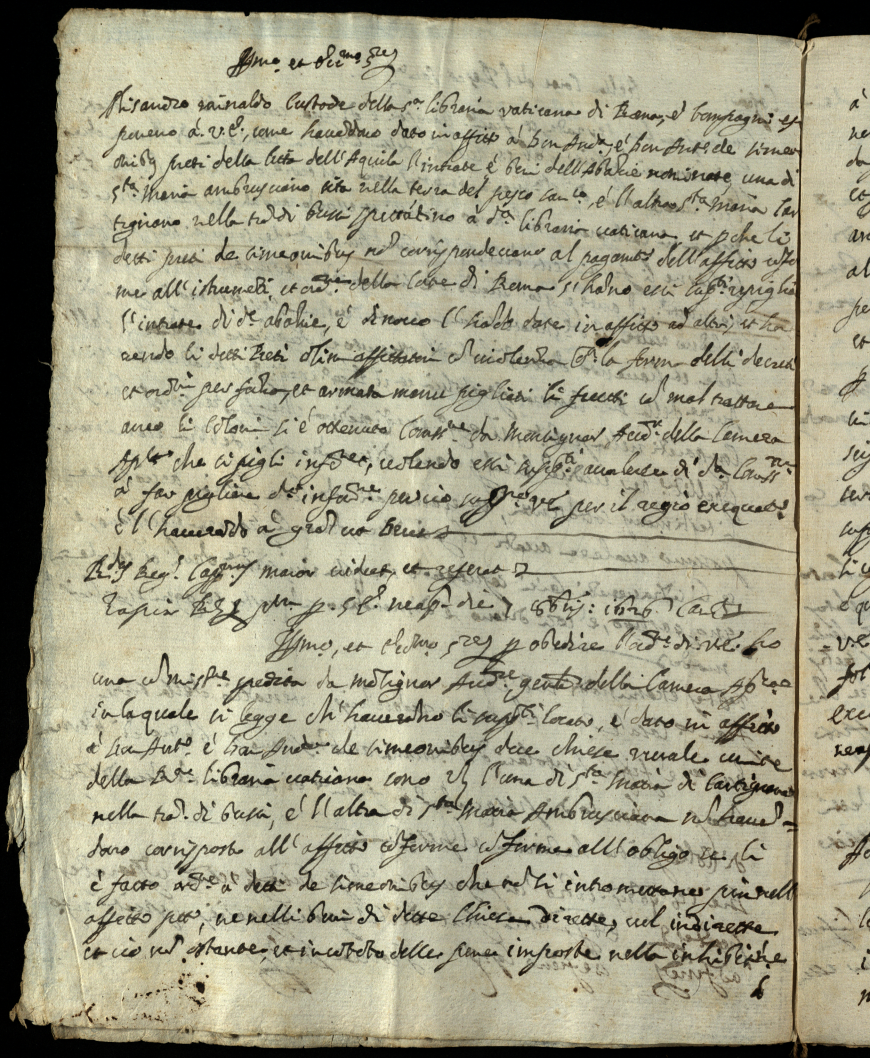 Ill.mo et Ecc.mo S.re
Alisandro rainaldo Custode della s.ta libraria vaticana di Roma, é Compagni es
poneno á V.E. come havendono dato in affitto á Don And.a é Don Ant.o de Simeo
nibus preti della Citta dell'Aquila l'intrate é beni dell'Abbatie nominate una di
S.ta Maria ambrusciano sita nella terra del pesco san.co, é l'altra S.ta Maria Car
tignano nella t.ra di bussi spettantino á d.ta libraria vaticana et p che li
detti preti de Simeonibus nō corrispondevano al pagam.to dell'affitto cōfor
me all'istrumēti, et ord.ne della Corte di Roma s'hāno essi sup.ti repigliat
l'intrate di d.e abatie, é di novo l'hāno date in affitto ad altri, et ha
vendo li detti Preti olim affittatori cō violentia cōt.a la forma delli decreti
et ordini per fatto, et armata manu pigliati li frutti cō mal trattare
anco li coloni si é ottenuta Comiss.ne da Monsignor Aud.r della Camera
Ap.lica che si pigli inform.e, volendo essi sup.ti avalerse di d.ta Comiss.ne
á far pigliare d.ta inform.ne perciò sup.no V.E. per il regio exequat.r
é l'haveranno á gratia ut Deus
R.dus Reg.s Capp.nus maior videat, et referat
Tapia R. p. S.E. neap. die 7 8bris: 1626
Ill.mo, et Ecc.mo S.re p obedire l'ord.e di V.E. ho
una cōmiss.ne spedita da mōsignor Aud.re gen.le della Camera Ap.ca
in la quale si legge ch'havendno li sup.ti locato, é dato in affitto
á Don Ant.o é Don And.a de Simeonibus due chiese rurale unite
della R.da libraria vaticana cioè l'una di S.ta Maria di Cartignano
nella t.ra di bussi, é l'altra di S.ta Maria Ambrusciana nō haven
dono corrisposto all'affitto cōforme cōforme all'obligo se li
é fatto ord.ne á detti de Simeonibus che nō si intromettano più nell
affitto p.to, ne nelli beni di dette Chiese directe, vel indirecte
et ciò nō ostante et in cōtēto delle pene imposte nella inhibit.ne